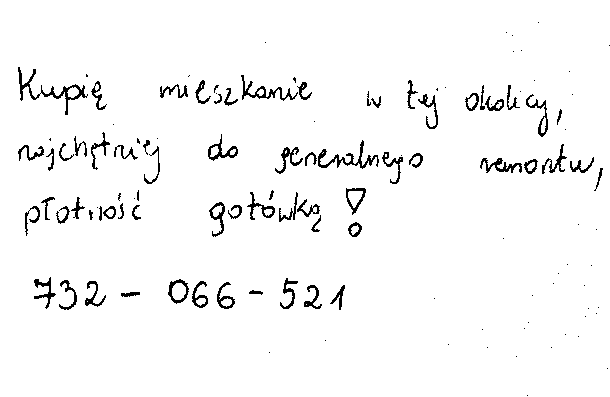 Kupię mieszkanie w tej okolicy,
najchętniej do generalnego remontu,
płatność gotówką!
732 - 066 - 521